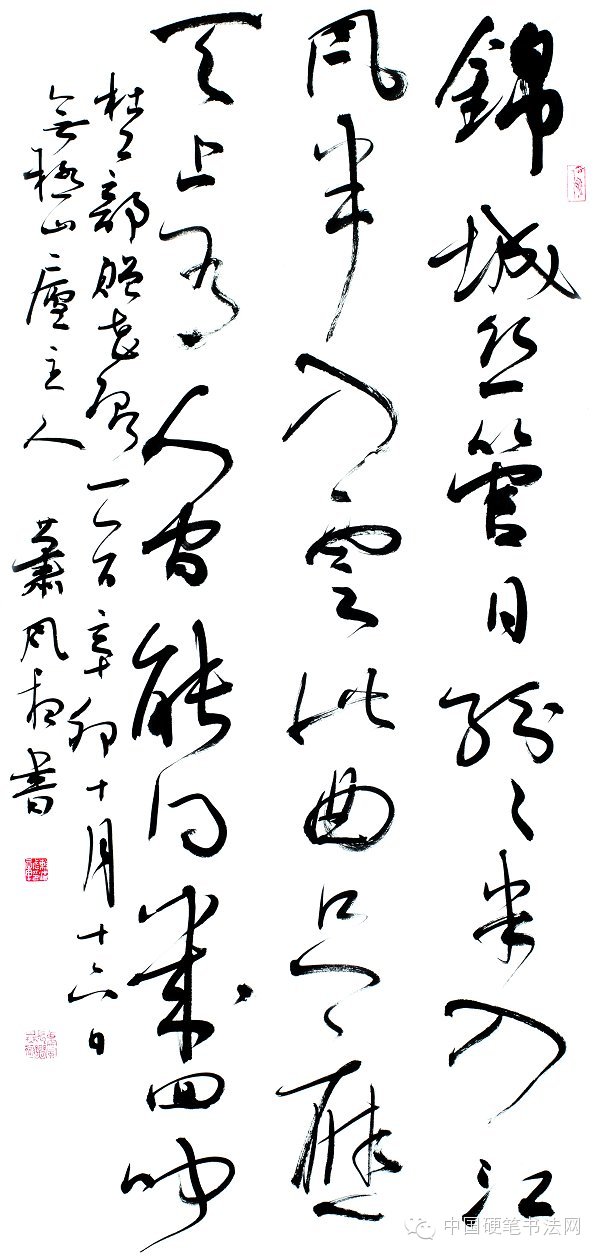 錦城丝管日紛〻半入江
风半入雲此曲只應
天上有人间能得幾回聞
杜工部贈花卿一首辛卯十月十六日
無極山廬主人蕭风書
中国硬笔书法网